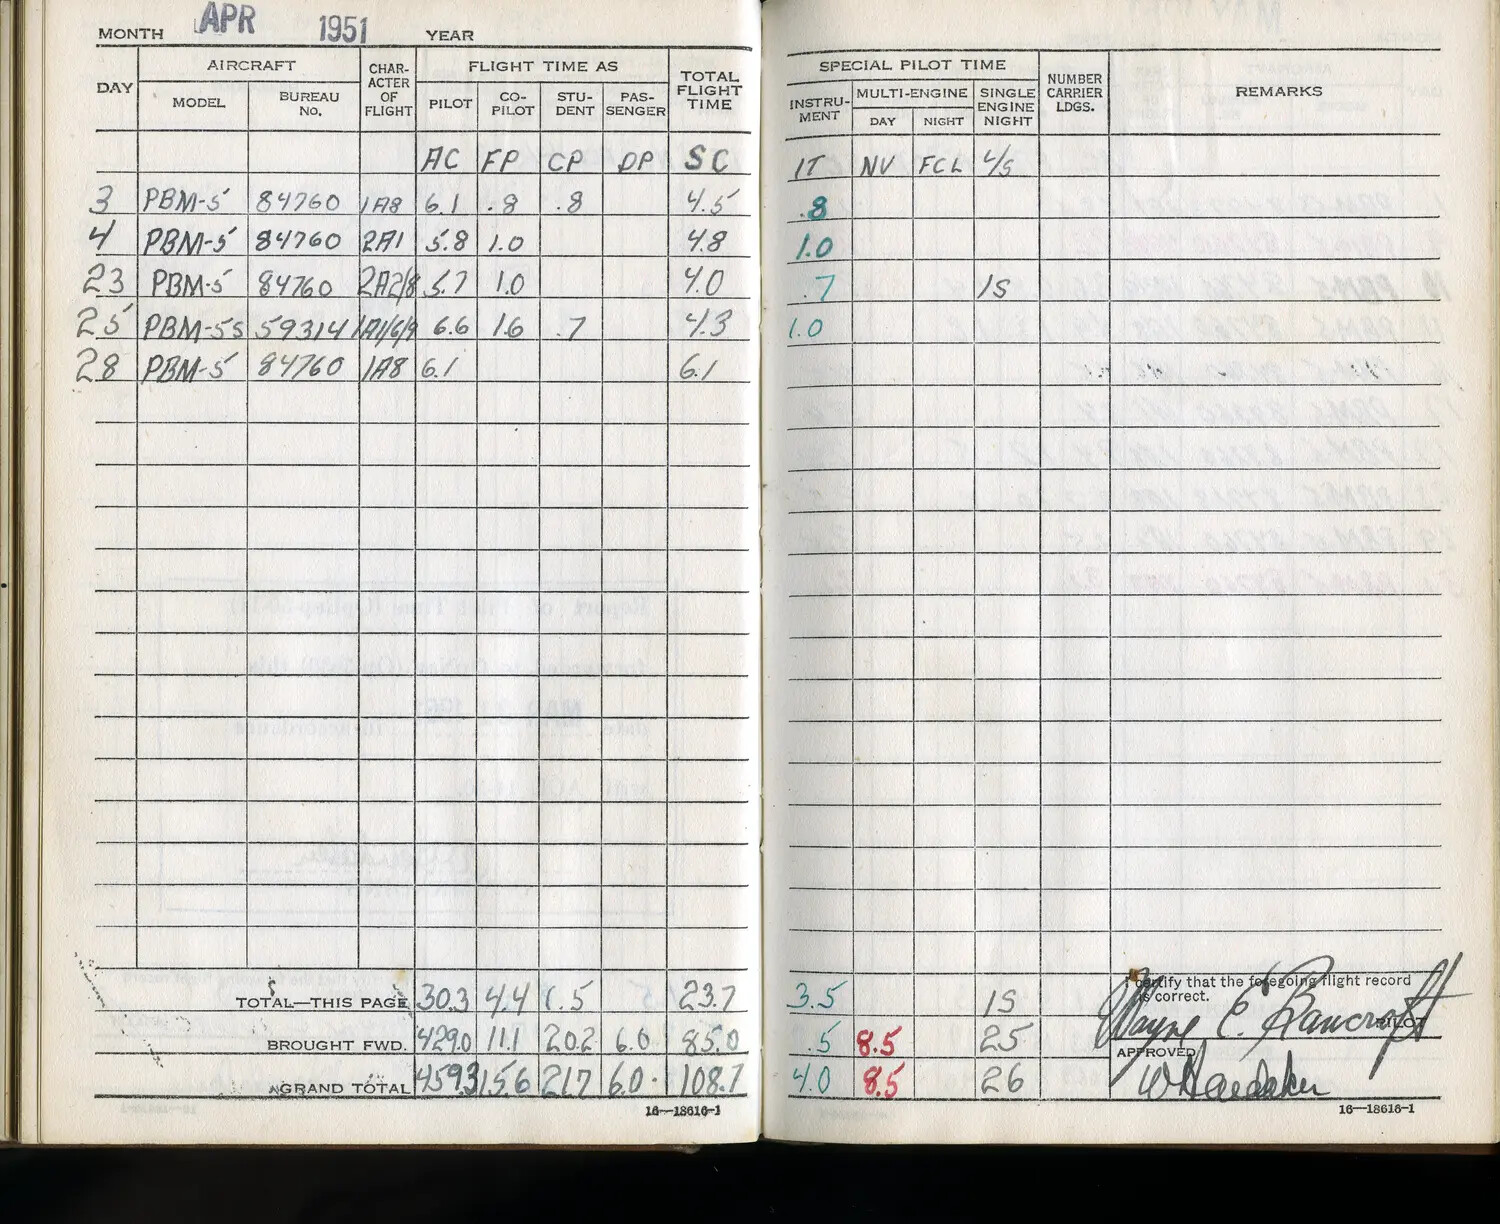 MONTH APR 1951 YEAR
DAY AIRCRAFT CHAR-ACTER OF FLIGHT FLIGHT TIME AS TOTAL FLIGHT TIME
MODEL BUREAU NO. PILOT CO-PILOT STU-DENT PAS-SENGER
AC FP CP DP SC
3 PBM-5 84760 1A8 6.1 .8 .8 4.5
4 PBM-5 84760 2A1 5.8 1.0 4.8
23 PBM-5 84760 2A2/8 5.7 1.0 4.0
25 PBM-5S 59314 1A1/6/9 6.6 1.6 .7 4.3
28 PBM-5 84760 1A8 6.1 6.1
TOTAL—THIS PAGE 30.3 4.4 1.5 23.7
BROUGHT FWD. 429.0 11.1 20.2 6.0 85.0
GRAND TOTAL 459.3 15.6 21.7 6.0 108.7
16—18616-1
SPECIAL PILOT TIME NUMBER CARRIER LDGS. REMARKS
INSTRU-MENT MULTI-ENGINE SINGLE ENGINE NIGHT
DAY NIGHT
IT NV FCL L/S
.8
1.0
.7 1S
1.0
3.5 1S
.5 8.5 25
4.0 8.5 26
I certify that the foregoing flight record is correct.
Wayne C. Bancroft
PILOT
APPROVED
16—18616-1